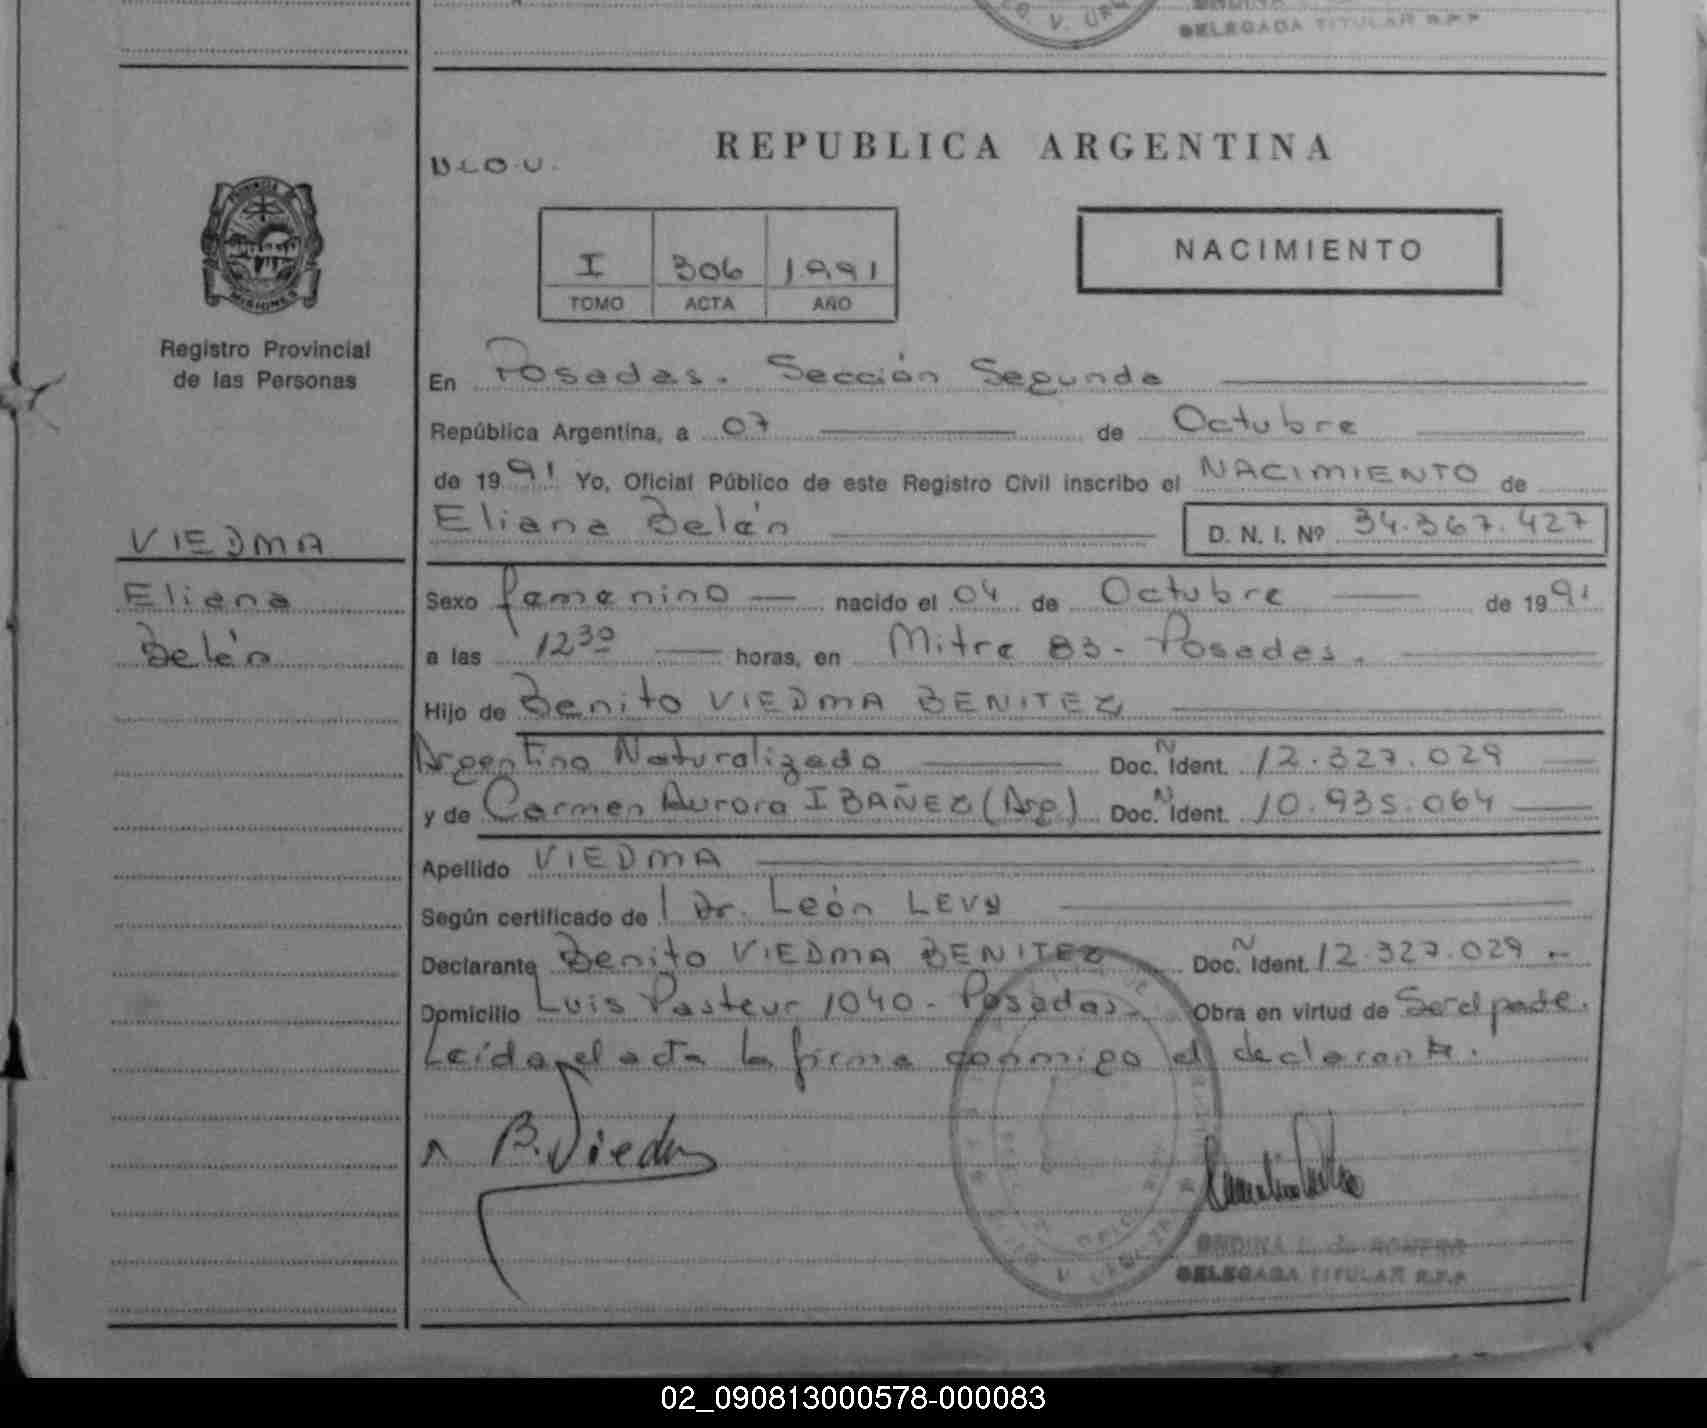 DELEGADA TITULAR R.P.P
V. URU
REPUBLICA ARGENTINA
I 306 1991
TOMO ACTA AÑO
NACIMIENTO
PROVINCIA DE
MISIONES
Registro Provincial
de las Personas
En Posadas. Sección Segunda
República Argentina, a 07 de Octubre
de 1991 Yo, Oficial Público de este Registro Civil inscribo el NACIMIENTO de
Eliana Belén D. N. I. Nº 34.367.427
VIEDMA
Eliana
Belén
Sexo femenino nacido el 04 de Octubre de 1991
a las 12 30 horas, en Mitre 83 - Posadas.
Hijo de Benito VIEDMA BENITEZ
Argentino Naturalizado Doc. N Ident. 12.327.029
y de Carmen Aurora IBAÑEZ (Arg) Doc. N Ident. 10.935.064
Apellido VIEDMA
Según certificado de Dr. León LEVY
Declarante Benito VIEDMA BENITEZ Doc. N Ident. 12.327.029
Domicilio Luis Pasteur 1040 - Posadas. Obra en virtud de Ser el padre.
Leída el acta la firma conmigo el declarante.
B. Viedma
ONDINA L. de ROMERO
DELEGADA TITULAR R.P.P
02_090813000578-000083